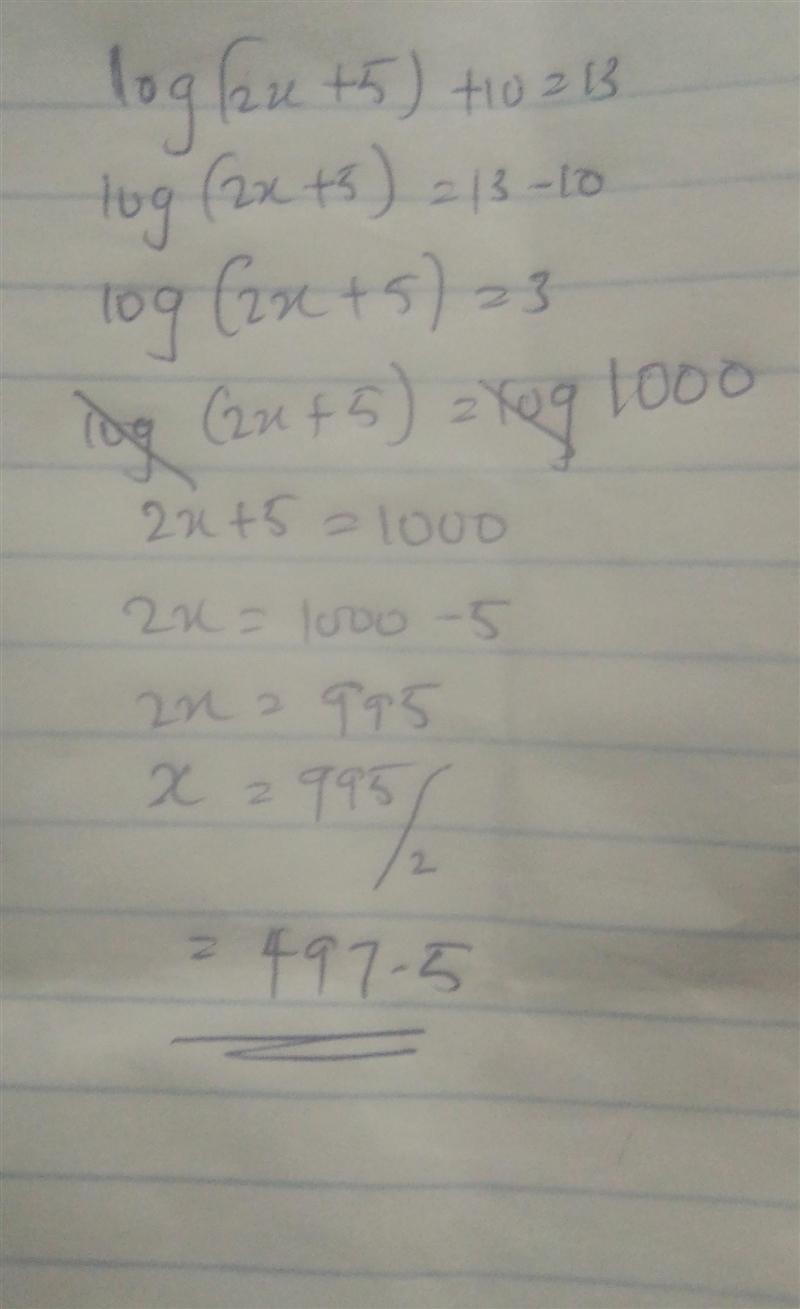 log(2x+5) +10=13
log (2x+5) =13-10
log (2x+5) =3
log (2x+5) =log 1000
2x+5 =1000
2x= 1000 -5
2x = 995
x = 995/2
= 497.5